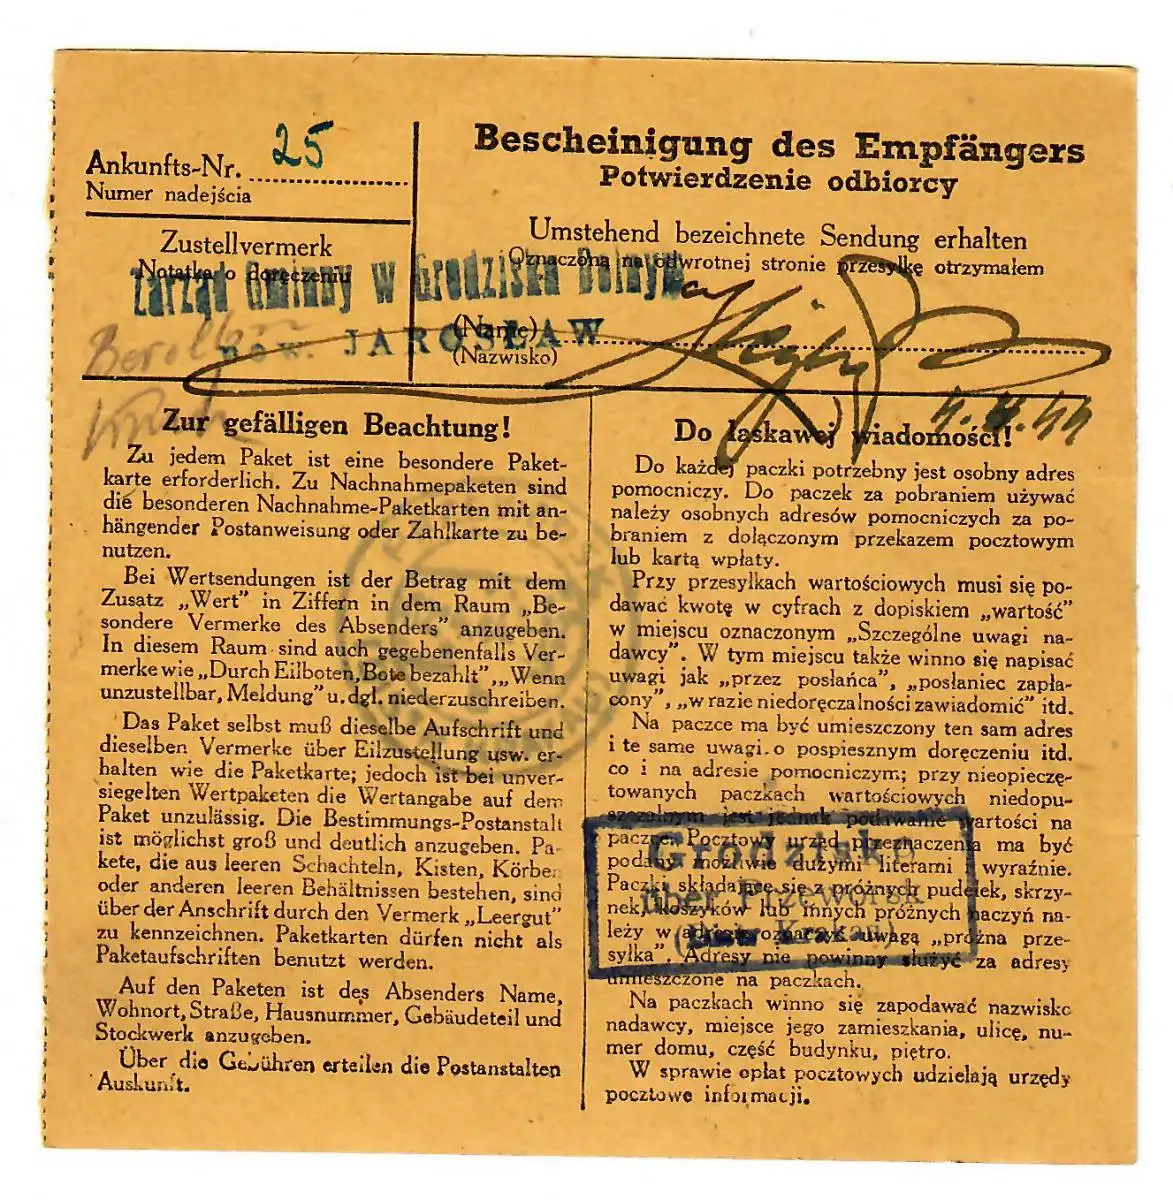 Ankunfts-Nr. 25
Numer nadejścia
Zustellvermerk
Notatka o doręczeniu
Bescheinigung des Empfängers
Potwierdzenie odbiorcy
Umstehend bezeichnete Sendung erhalten
Oznaczoną na odwrotnej stronie przesyłkę otrzymałem
Zarząd Gminny w Grodzisku Dolnym
pow. JAROSŁAW
(Name)
(Nazwisko)
Zur gefälligen Beachtung!
Zu jedem Paket ist eine besondere Paket-
karte erforderlich. Zu Nachnahmepaketen sind
die besonderen Nachnahme-Paketkarten mit an-
hängender Postanweisung oder Zahlkarte zu be-
nutzen.
Bei Wertsendungen ist der Betrag mit dem
Zusatz „Wert" in Ziffern in dem Raum „Be-
sondere Vermerke des Absenders" anzugeben.
In diesem Raum sind auch gegebenenfalls Ver-
merke wie „Durch Eilboten, Bote bezahlt", „Wenn
unzustellbar, Meldung" u. dgl. niederzuschreiben.
Das Paket selbst muß dieselbe Aufschrift und
dieselben Vermerke über Eilzustellung usw. er-
halten wie die Paketkarte; jedoch ist bei unver-
siegelten Wertpaketen die Wertangabe auf dem
Paket unzulässig. Die Bestimmungs-Postanstalt
ist möglichst groß und deutlich anzugeben. Pa-
kete, die aus leeren Schachteln, Kisten, Körben
oder anderen leeren Behältnissen bestehen, sind
über der Anschrift durch den Vermerk „Leergut"
zu kennzeichnen. Paketkarten dürfen nicht als
Paketaufschriften benutzt werden.
Auf den Paketen ist des Absenders Name,
Wohnort, Straße, Hausnummer, Gebäudeteil und
Stockwerk anzugeben.
Über die Gebühren erteilen die Postanstalten
Auskunft.
Do łaskawej wiadomości!
Do każdej paczki potrzebny jest osobny adres
pomocniczy. Do paczek za pobraniem używać
należy osobnych adresów pomocniczych za po-
braniem z dołączonym przekazem pocztowym
lub kartą wpłaty.
Przy przesyłkach wartościowych musi się po-
dawać kwotę w cyfrach z dopiskiem „wartość"
w miejscu oznaczonym „Szczególne uwagi na-
dawcy". W tym miejscu także winno się napisać
uwagi jak „przez posłańca", „posłaniec zapła-
cony", „w razie niedoręczalności zawiadomić" itd.
Na paczce ma być umieszczony ten sam adres
i te same uwagi o pospiesznym doręczeniu itd.
co i na adresie pomocniczym; przy nieopieczę-
towanych paczkach wartościowych niedopu-
szczalnym jest jednak podawanie wartości na
paczce. Pocztowy urząd przeznaczenia ma być
podany możliwie dużymi literami i wyraźnie.
Paczki składające się z próżnych pudełek, skrzy-
nek, koszyków lub innych próżnych naczyń na-
leży w adresie oznaczyć uwagą „próżna prze-
syłka". Adresy nie powinny służyć za adresy
umieszczone na paczkach.
Na paczkach winno się zapodawać nazwisko
nadawcy, miejsce jego zamieszkania, ulicę, nu-
mer domu, część budynku, piętro.
W sprawie opłat pocztowych udzielają urzędy
pocztowe informacji.
Grodzisko
über Przeworsk
(Distr Krakau)